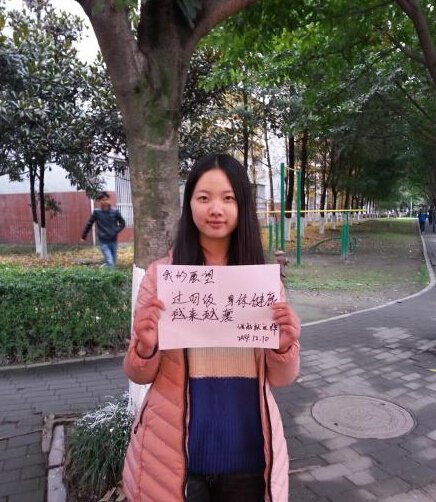 我的愿望
过四级 身体健康
越来越瘦
2014.12.10